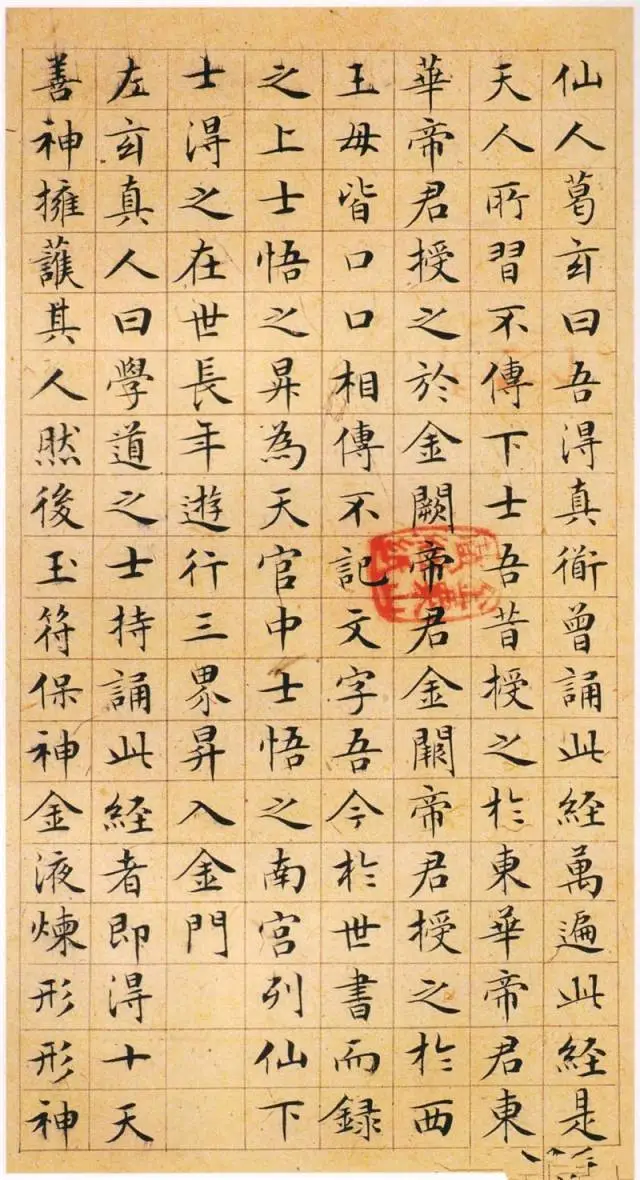 仙人葛玄曰吾得真衜曾誦此経萬遍此経是
天人所習不傳下士吾昔授之扵東華帝君東
華帝君授之於金闕帝君金闕帝君授之扵西
王母皆口口相傳不記文字吾今扵世書而録
之上士悟之昇為天官中士悟之南宮列仙下
士得之在世長年遊行三界昇入金門
左玄真人曰學道之士持誦此経者即得十天
善神擁護其人然後玉符保神金液煉形形神